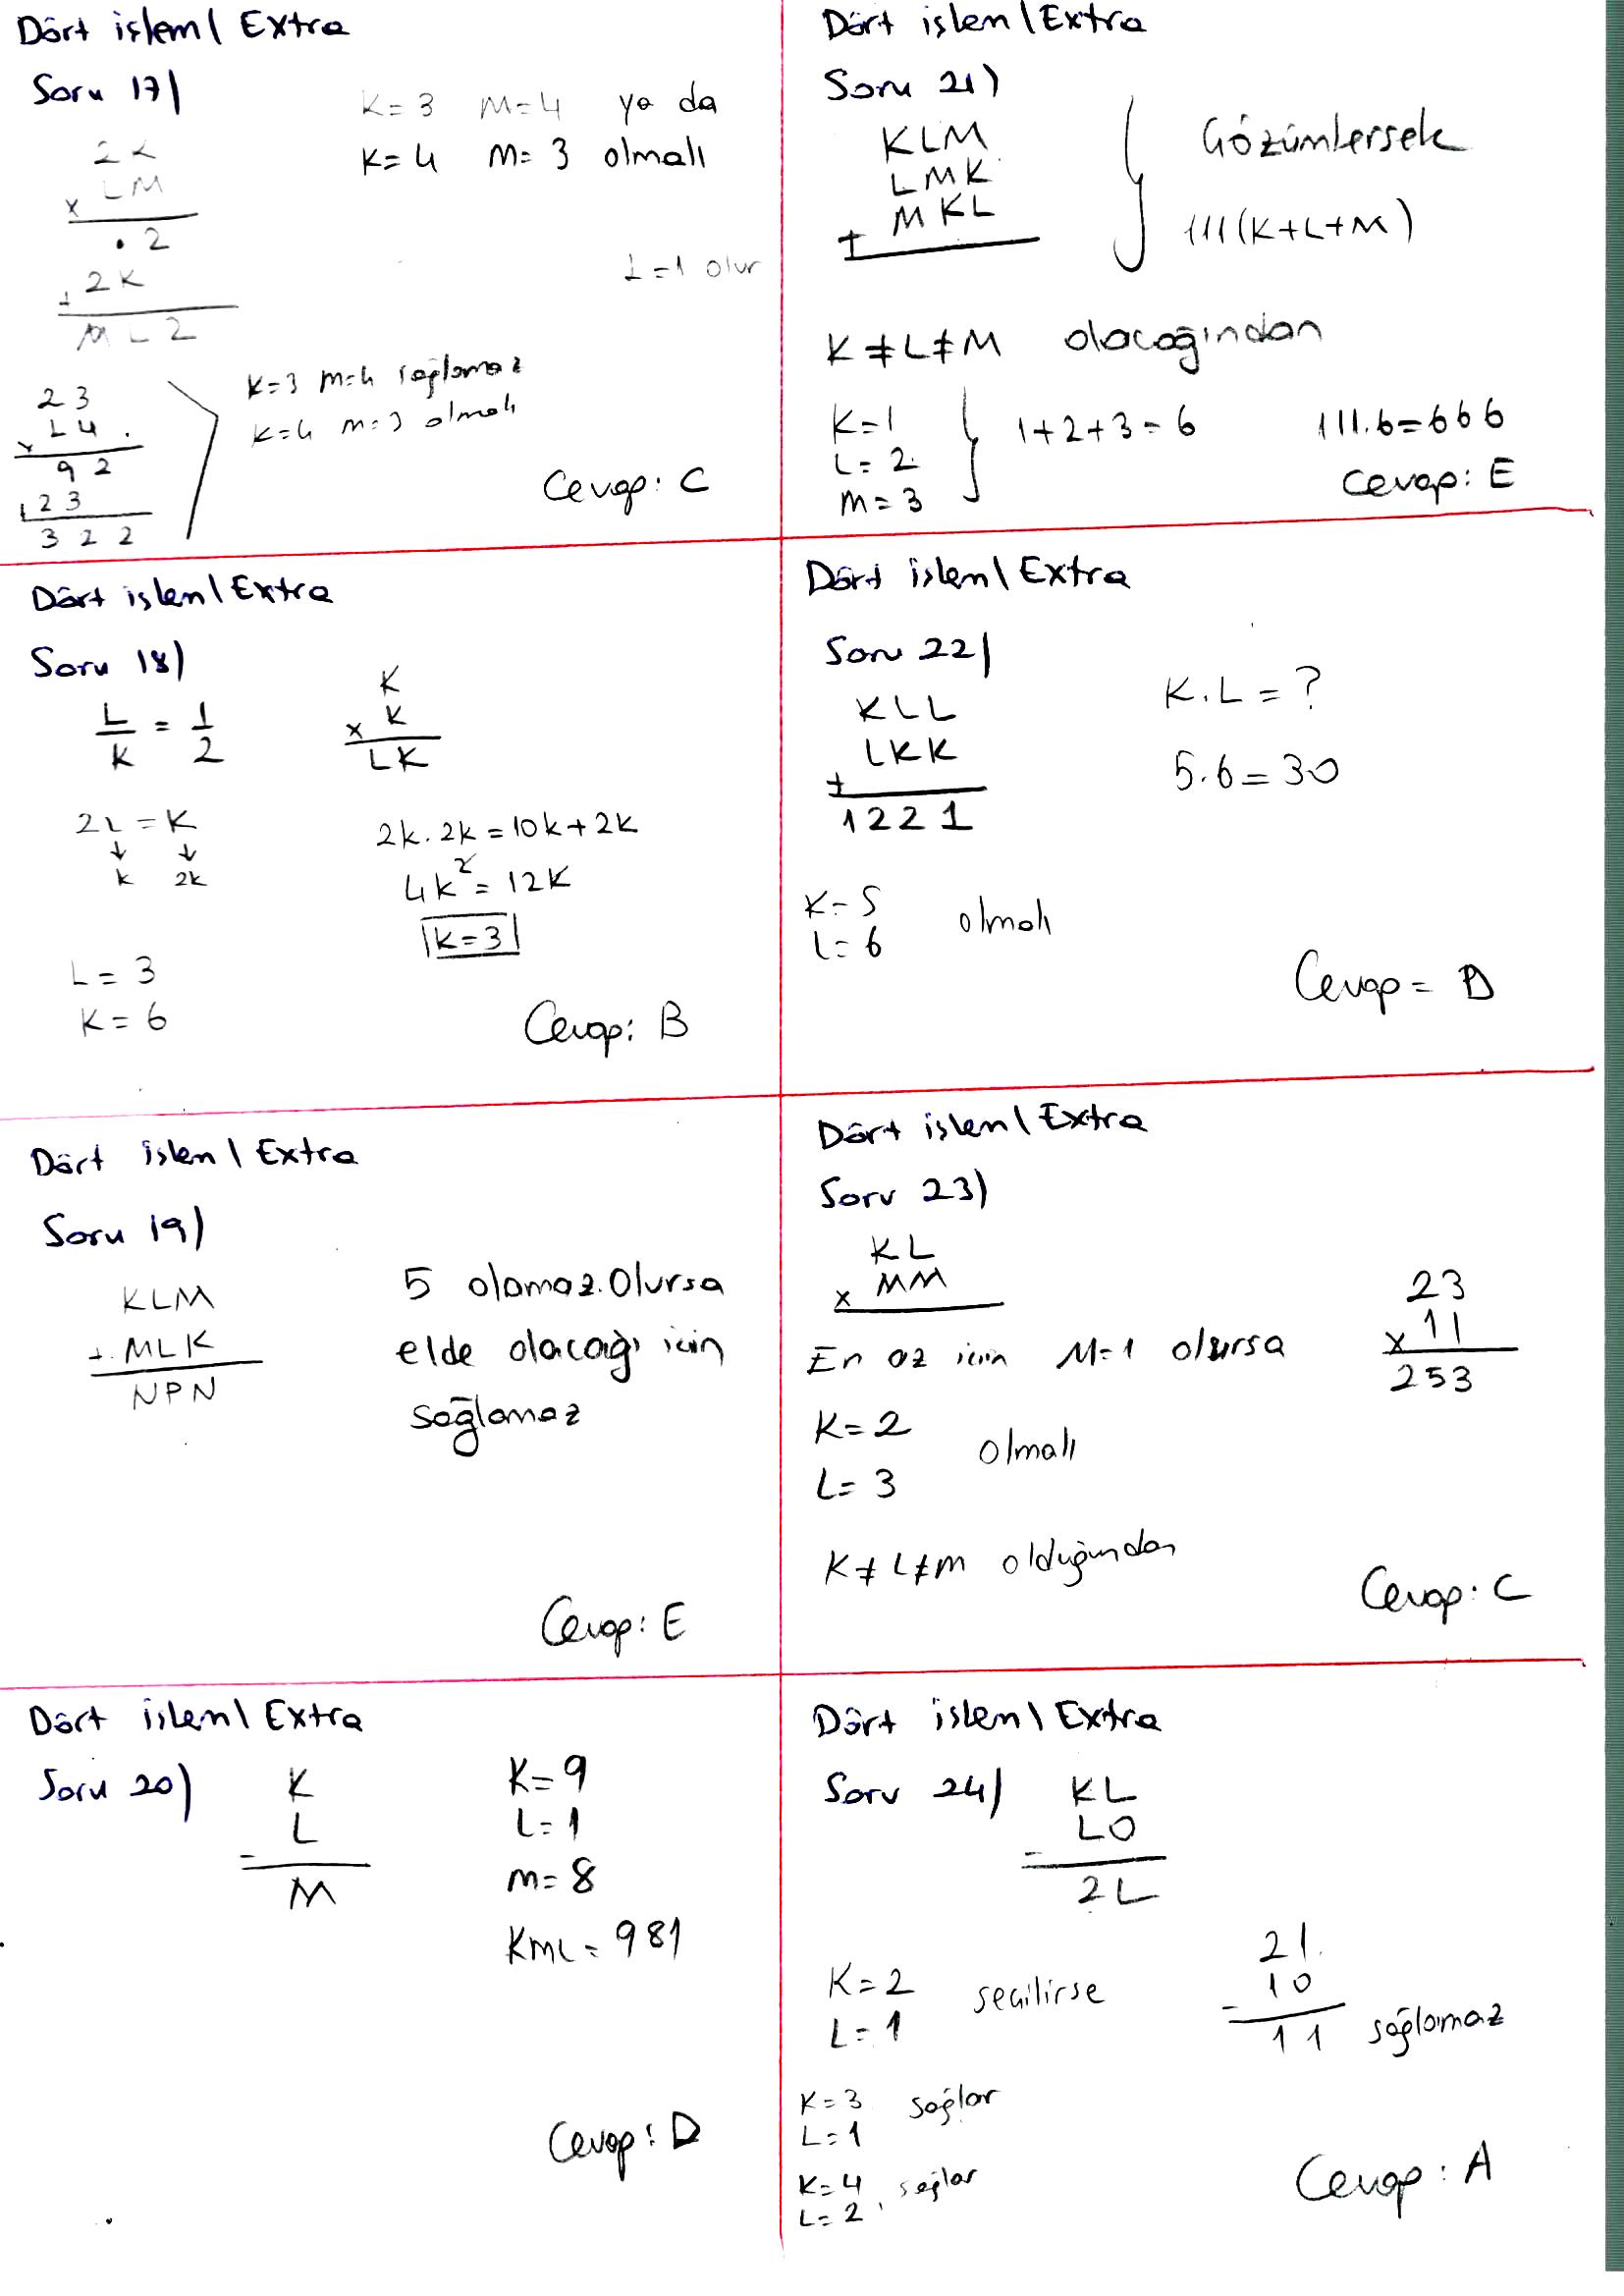 Dört işlem \ Extra
Soru 17)
K=3 M=4 ya da
K=4 M=3 olmalı
2K
x LM
.2
+ 2K
ML2
L=1 olur
23
x L4.
92
+23
322
K=3 M=4 sağlamaz
K=4 M=3 olmalı
Cevap: C
Dört işlem \ Extra
Soru 18)
L/K = 1/2
K
x K
LK
2L = K
↓ ↓
k 2k
2k.2k = 10k+2k
4k² = 12k
k=3
L = 3
K = 6
Cevap: B
Dört işlem \ Extra
Soru 19)
KLM
+ MLK
NPN
5 olamaz. Olursa
elde olacağı için
sağlamaz
Cevap: E
Dört işlem \ Extra
Soru 20)
K
L
-
M
K=9
L=1
M=8
KML = 981
Cevap: D
Dört işlem \ Extra
Soru 21)
KLM
LMK
+ MKL
Çözümlersek
111(K+L+M)
K≠L≠M olacağından
K=1
L=2
M=3
1+2+3=6
111.6=666
Cevap: E
Dört işlem \ Extra
Soru 22)
KLL
+ LKK
1221
K.L = ?
5.6=30
K=5
L=6
olmalı
Cevap = D
Dört işlem \ Extra
Soru 23)
KL
x MM
En az için M=1 olursa
23
x 11
253
K=2
L=3
olmalı
K≠L≠M olduğundan
Cevap: C
Dört işlem \ Extra
Soru 24)
KL
- L0
2L
K=2
L=1
seçilirse
21.
- 10
11 sağlamaz
K=3
L=1
sağlar
K=4
L=2
sağlar
Cevap: A